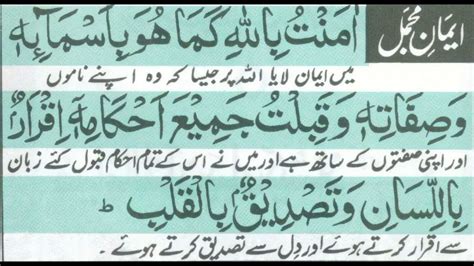 ایمان مجمل
اٰمَنْتُ بِاللّٰهِ كَمَا هُوَ بِاَسْمَآئِهٖ
میں ایمان لایا اللہ پر جیسا کہ وہ اپنے ناموں
وَصِفَاتِهٖ وَقَبِلْتُ جَمِيْعَ اَحْكَامِهٖ اِقْرَارٌ
اور اپنی صفتوں کے ساتھ ہے اور میں نے اس کے تمام احکام قبول کئے زبان
بِاللِّسَانِ وَتَصْدِيْقٌ بِالْقَلْبِ ط
سے اقرار کرتے ہوئے اور دل سے تصدیق کرتے ہوئے ۔